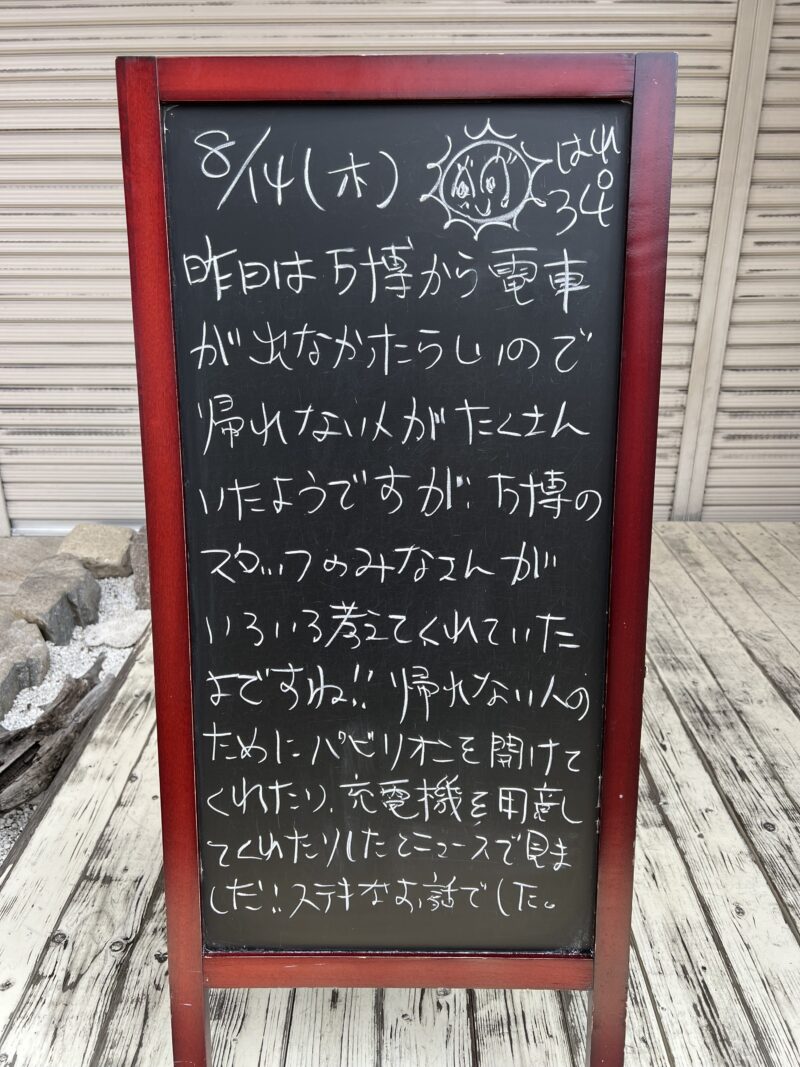 8/14(木) はれ
34°
昨日は万博から電車
が出なかったらしいので
帰れない人がたくさん
いたようですが、万博の
スタッフのみなさんが
いろいろ考えてくれていた
よですね!! 帰れない人の
ためにパビリオンを開けて
くれたり、充電機を用意し
てくれたりしたとニュースで見ま
した!! ステキなお話でした。